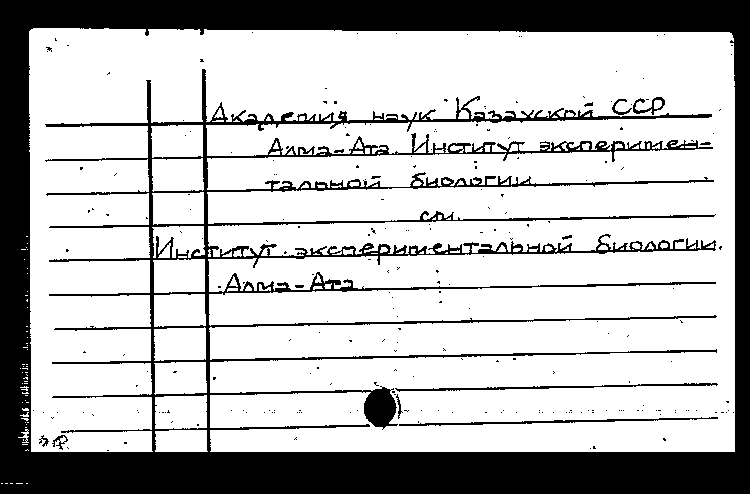 Академия наук Казахской ССР.
Алма-Ата. Институт эксперимен-
тальной биологии.
см.
Институт экспериментальной биологии.
Алма-Ата